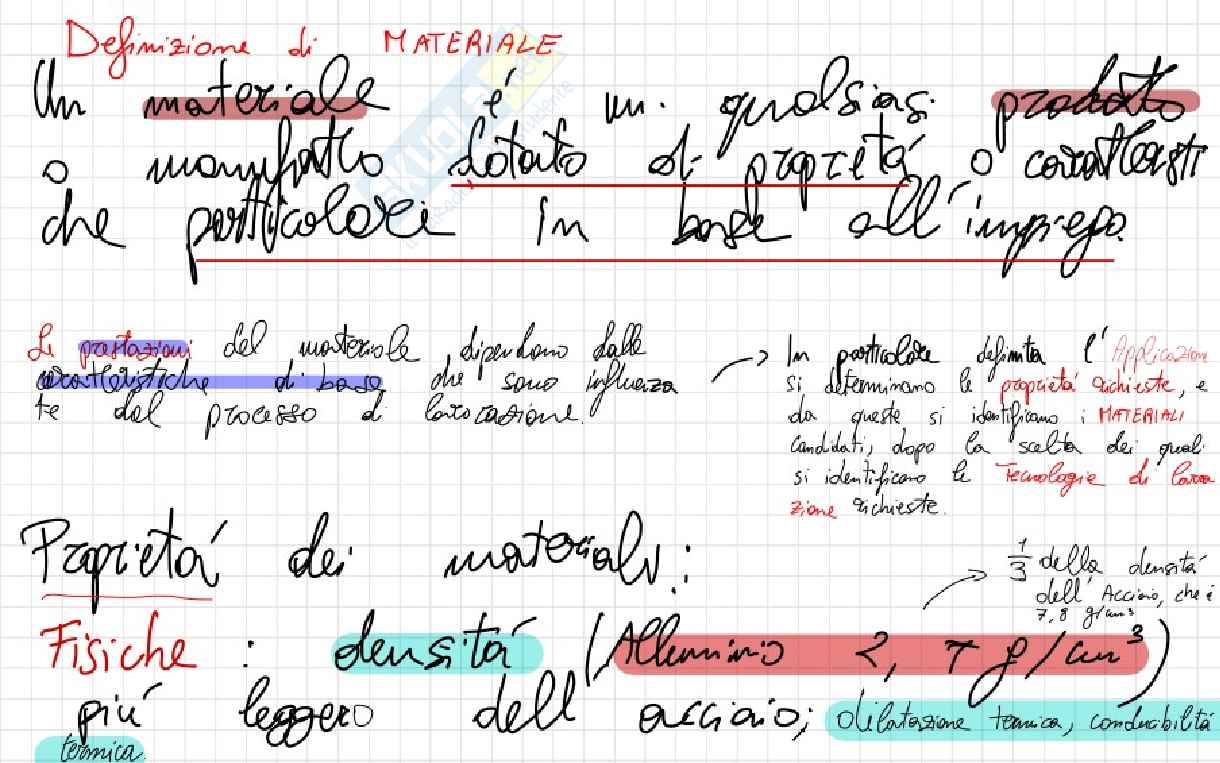 Definizione di MATERIALE
Un materiale é un qualsiasi prodotto
o manufatto dotato di proprietá o caratteristi
che particolari in base all'impiego.
Le prestazioni del materiale dipendono dalle
caratteristiche di base che sono influenza
te dal processo di lavorazione.
In particolare definita l'Applicazione
si determinano le proprietá richieste, e
da queste si identificano i MATERIALI
candidati, dopo la scelta dei quali
si identificano le Tecnologie di lavora
zione richieste.
Proprietá dei materiali:
1/3 della densitá
dell'Acciaio, che é
7,8 g/cm³
Fisiche : densitá (Alluminio 2,7 g/cm³)
piú leggero dell'acciaio; dilatazione termica, conducibilitá
termica.